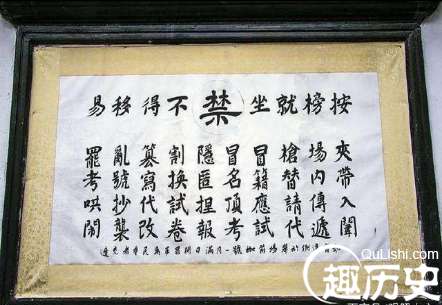 按榜就坐禁不得移易
夾帶入闈
場內傳遞
槍替請代
冒籍應試
冒名頂考
隱匿捏報
割換試卷
篡寫代改
亂號抄襲
罷考哄鬧
QuLishi.com
趣历史